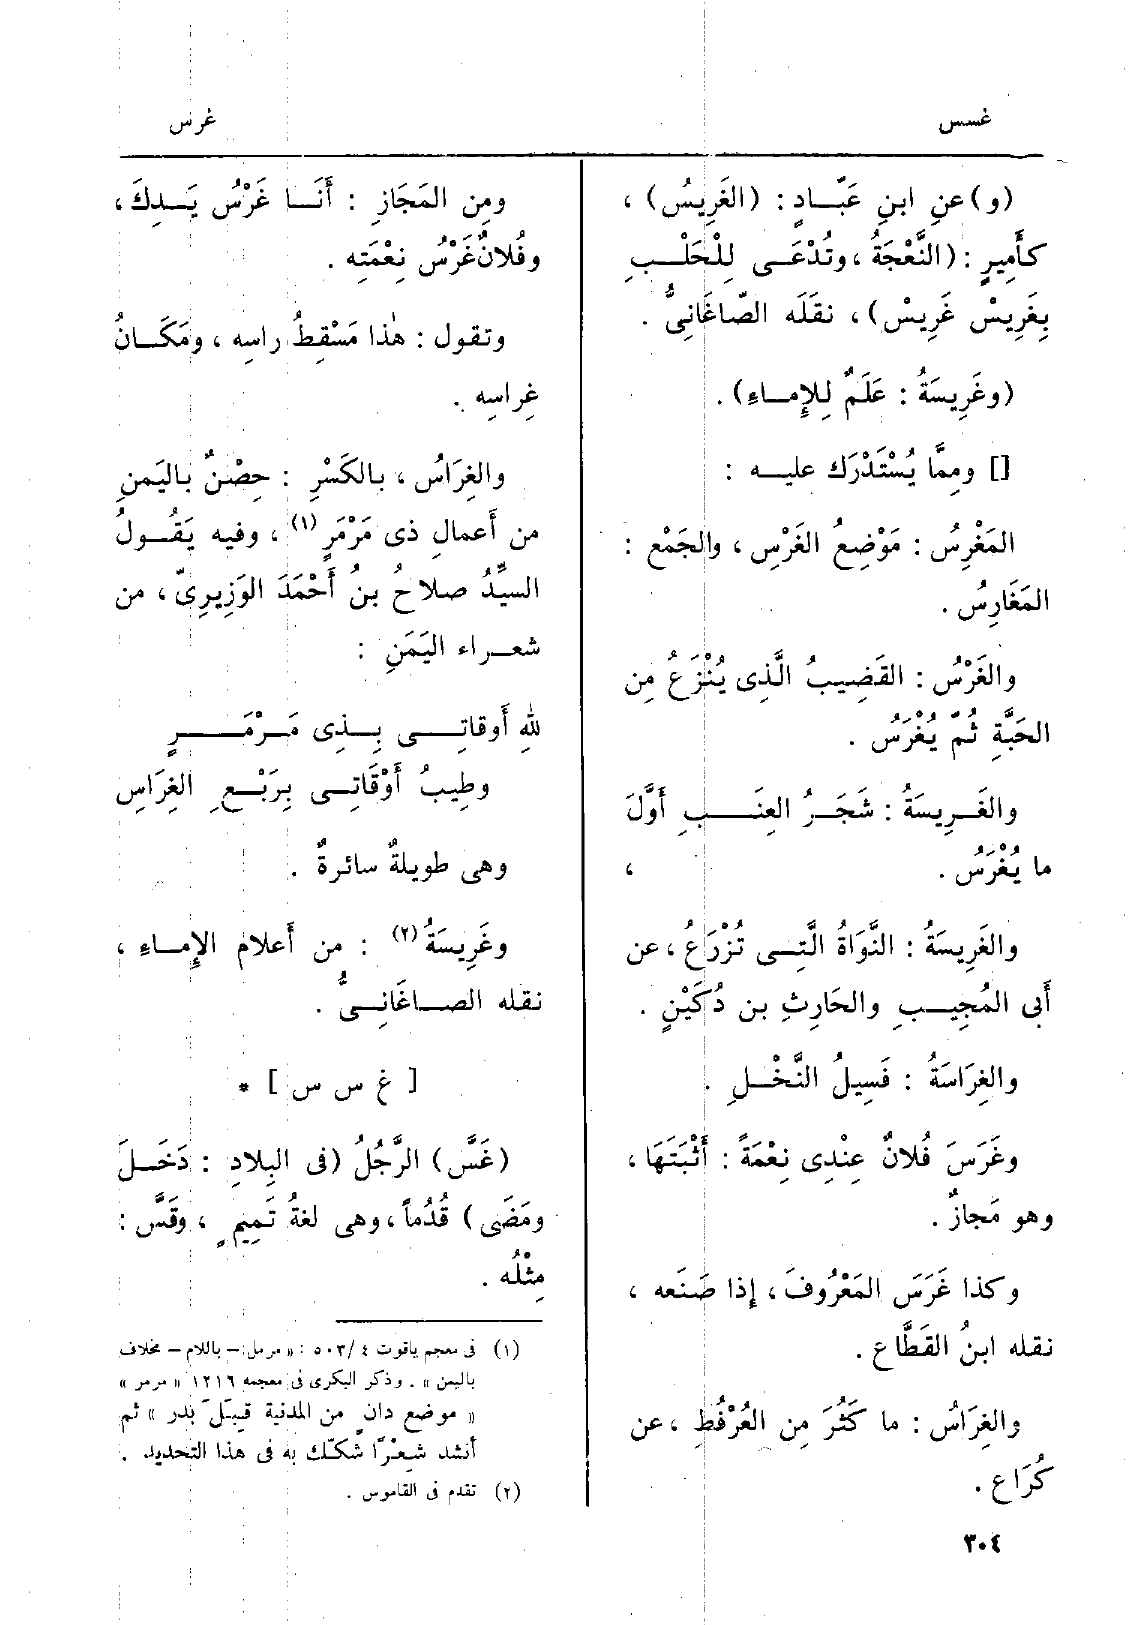 غسس
غرس
(و) عنِ ابنِ عَبَّادٍ : (الغَرِيسُ) ،
كأَمِيرٍ : (النَّعْجَةُ ، وتُدْعَى لِلْحَلْبِ
بِغَرِيسْ غَرِيسْ) ، نقلَه الصّاغَانِىُّ .
(وغَرِيسَةُ : عَلَمٌ لِلإِماءِ) .
[] ومِمَّا يُسْتَدْرَك عليه :
المَغْرِسُ : مَوْضِعُ الغَرْسِ ، والجَمْع :
المَغَارِسُ .
والغَرْسُ : القَضِيبُ الَّذِى يُنْزَعُ مِن
الحَبَّةِ ثُمّ يُغْرَسُ .
والغَرِيسَةُ : شَجَرُ العِنَبِ أَوَّلَ
ما يُغْرَسُ .
والغَرِيسَةُ : النَّواةُ الَّتِى تُزْرَعُ ، عن
أَبِى المُجِيبِ والحَارِثِ بن دُكَيْنٍ .
والغِرَاسَةُ : فَسِيلُ النَّخْلِ .
وغَرَسَ فُلانٌ عِنْدِى نِعْمَةً : أَثْبَتَهَا ،
وهو مَجازٌ .
وكذا غَرَسَ المَعْرُوفَ ، إِذا صَنَعه ،
نقله ابنُ القَطَّاع .
والغِرَاسُ : ما كَثُرَ مِن العُرْفُطِ ، عن
كُرَاع .
ومِن المَجَازِ : أَنَا غَرْسُ يَدِكَ ،
وفُلانٌ غَرْسُ نِعْمَتِه .
وتقول : هٰذا مَسْقِطُ راسِه ، ومَكَانُ
غِراسِه .
والغِرَاسُ ، بالكَسْرِ : حِصْنٌ باليَمنِ
من أَعمالِ ذى مَرْمَرٍ (١) ، وفيه يَقُولُ
السيِّدُ صلاحُ بنُ أَحْمَدَ الوَزِيرِىّ ، من
شعراء اليَمَنِ :
للهِ أَوقاتِى بِذِى مَرْمَرٍ
وطِيبُ أَوْقَاتِى بِرَبْعِ الغِرَاسِ
وهى طويلةٌ سائرةٌ .
وغَرِيسَةُ (٢) : من أَعلام الإِماءِ ،
نقله الصاغَانِىُّ .
[ غ س س ] *
(غَسَّ) الرَّجُلُ (فى البِلادِ : دَخَلَ
ومَضَى) قُدُماً ، وهى لغةُ تَمِيمٍ ، وقَسَّ :
مِثْلُه .
(١) فى معجم ياقوت ٥٠٣/٤ : « مرمل – باللام – مخلاف
باليمن » . وذكر البكرى فى معجمه ١٢١٦ « مرمر »
« موضع دانٍ من المدنية قِبَلَ بدر » ثم
أنشد شِعْرًا شكّك به فى هذا التحديد .
(٢) تقدم فى القاموس .
٣٠٤